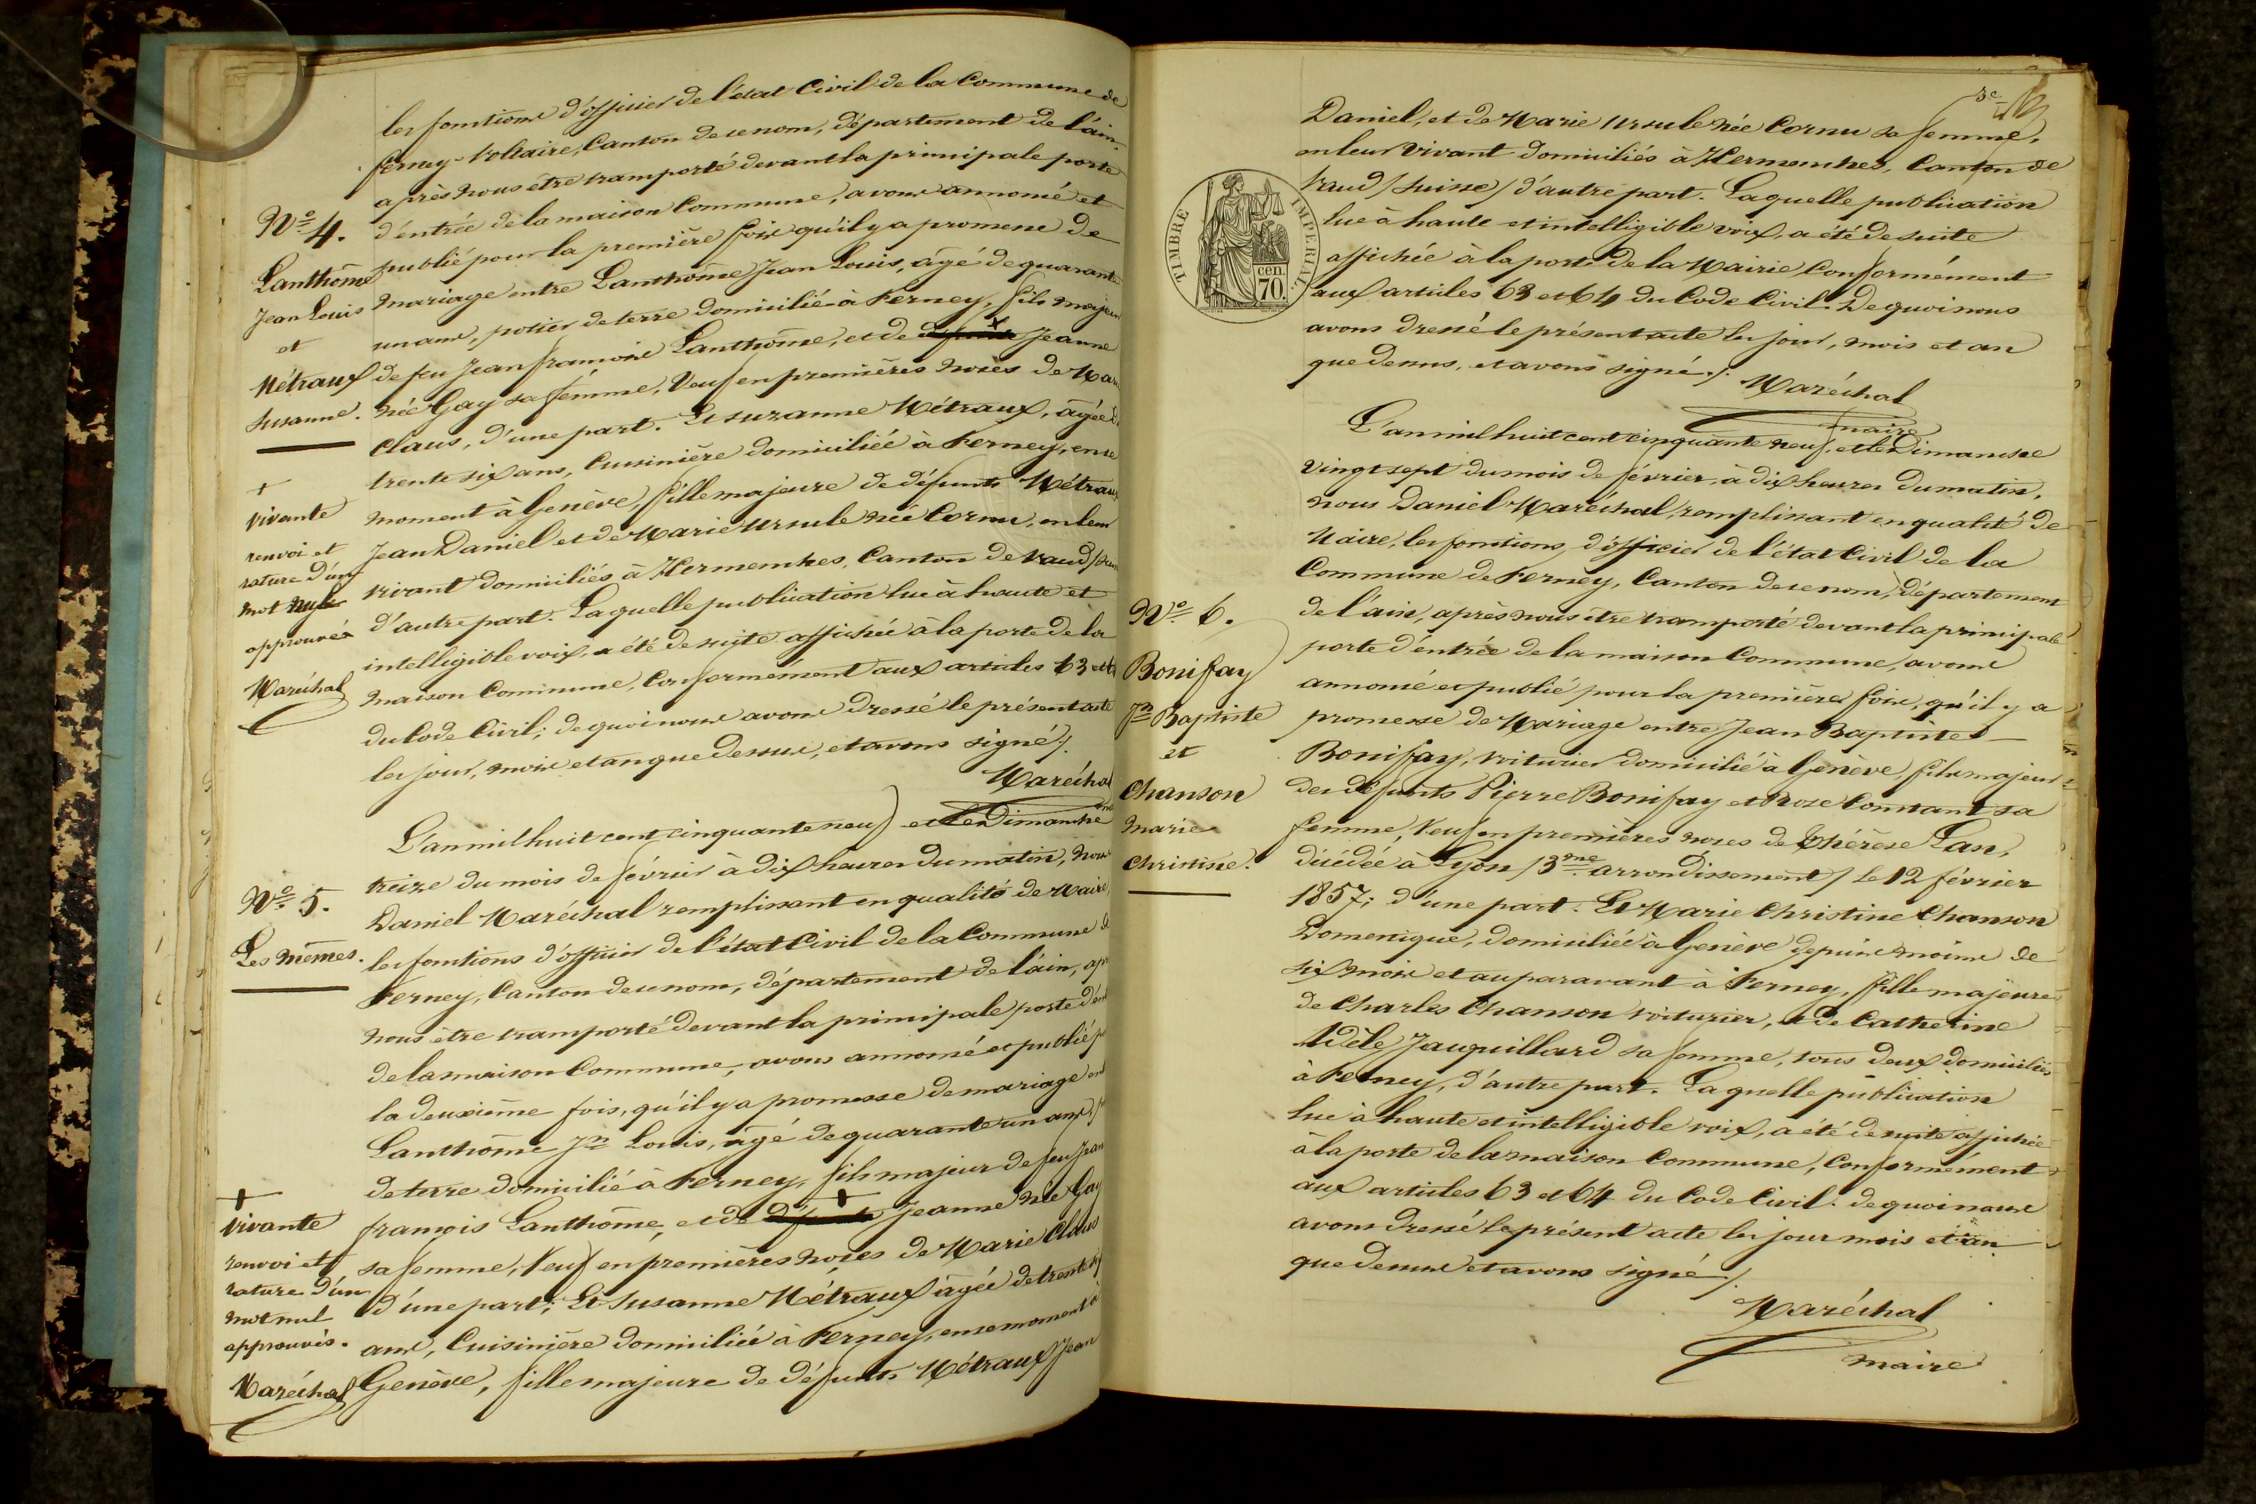 les fonctions d'officier de l'état Civil de la Commune de
ferney-Voltaire, Canton de ce nom, département de l'ain,
après nous être transporté devant la principale porte
d'entrée de la maison Commune, avons annoncé et
publié pour la première fois qu'il y a promesse de
mariage entre Lanthôme Jean Louis, âgé de quarante
un ans, potier de terre domicilié à Ferney, fils majeur
de feu Jean françois Lanthôme, et de Jeanne
née Gay sa femme, Veuf en premières noces de Marie
Claus, d'une part. Et suzanne Métraux, âgée de
trente six ans, Cuisinière domiciliée à Ferney, en ce
moment à Genève, fille majeure de défunts Métraux
Jean Daniel et de Marie Ursule née Cornu, en leur
vivant domiciliés à Hermenches, Canton de Vaud
d'autre part. Laquelle publication lue à haute et
intelligible voix, a été de suite affichée à la porte de la
maison Commune, Conformément aux articles 63 et
du Code Civil; de quoi nous avons dressé le présent acte
les jour, mois et an que dessus, et avons signé /.
Maréchal
Nº 4.
Lanthôme
Jean Louis
et
Métraux
Susanne.
+
vivante
renvoi et
rature d'un
mot nul
approuvés
Maréchal
L'an mil huit cent cinquante neuf et le Dimanche
treize du mois de février à dix heures du matin, nous
Daniel Maréchal remplissant en qualité de Maire,
les fonctions d'officier de l'état Civil de la Commune de
Ferney, Canton de ce nom, département de l'ain, après
nous être transporté devant la principale porte d'entrée
de la maison Commune, avons annoncé et publié pour
la deuxième fois, qu'il y a promesse de mariage entre
Lanthôme Jn Louis, âgé de quarante un ans,
de terre domicilié à Ferney, fils majeur de feu Jean
françois Lanthôme, et de Jeanne née Gay
sa femme, Veuf en premières noces de Marie Claus
d'une part; Et Susanne Métraux âgée de trente six
ans, Cuisinière domiciliée à Ferney, en ce moment à
Genève, fille majeure de défunts Métraux Jean
Nº 5.
Les mêmes.
+
vivante
renvoi et
rature d'un
mot nul
approuvés.
Maréchal
3e
Daniel, et de Marie Ursule née Cornu sa femme,
en leur Vivant domiciliés à Hermenches, Canton de
Vaud / Suisse / d'autre part. Laquelle publication
lue à haute et intelligible voix, a été de suite
affichée à la porte de la Mairie, Conformément
aux articles 63 et 64 du Code Civil. De quoi nous
avons dressé le présent acte les jour, mois et an
que dessus, et avons signé /.
Maréchal
maire
TIMBRE IMPERIAL
70. cen.
L'an mil huit cent cinquante neuf, et le Dimanche
vingt sept du mois de février, à dix heures du matin,
nous Daniel Maréchal, remplissant en qualité de
Maire, les fonctions d'officier de l'état Civil de la
Commune de Ferney, Canton de ce nom, département
de l'ain, après nous être transporté devant la principale
porte d'entrée de la maison Commune, avons
annoncé et publié pour la première fois, qu'il y a
promesse de Mariage entre Jean Baptiste
Bonifay, voiturier domicilié à Genève, fils majeur
des défunts Pierre Bonifay et Rose Constant sa
femme, Veuf en premières noces de Thérèse Lan,
décédée à Lyon / 3me arrondissement / le 12 février
1857; d'une part. Et Marie Christine Chanson
Domenique, domiciliée à Genève depuis moins de
six mois et auparavant à Ferney, fille majeure
de Charles Chanson voiturier, et de Catherine
Adèle Jaquillard sa femme, tous deux domiciliés
à Ferney, d'autre part. Laquelle publication
lue à haute et intelligible voix, a été de suite affichée
à la porte de la maison Commune, Conformément
aux articles 63 et 64 du Code Civil. de quoi nous
avons dressé le présent acte les jour mois et an
que dessus et avons signé /.
Maréchal
maire
Nº 6.
Bonifay
Jn Baptiste
et
Chanson
Marie
Christine.